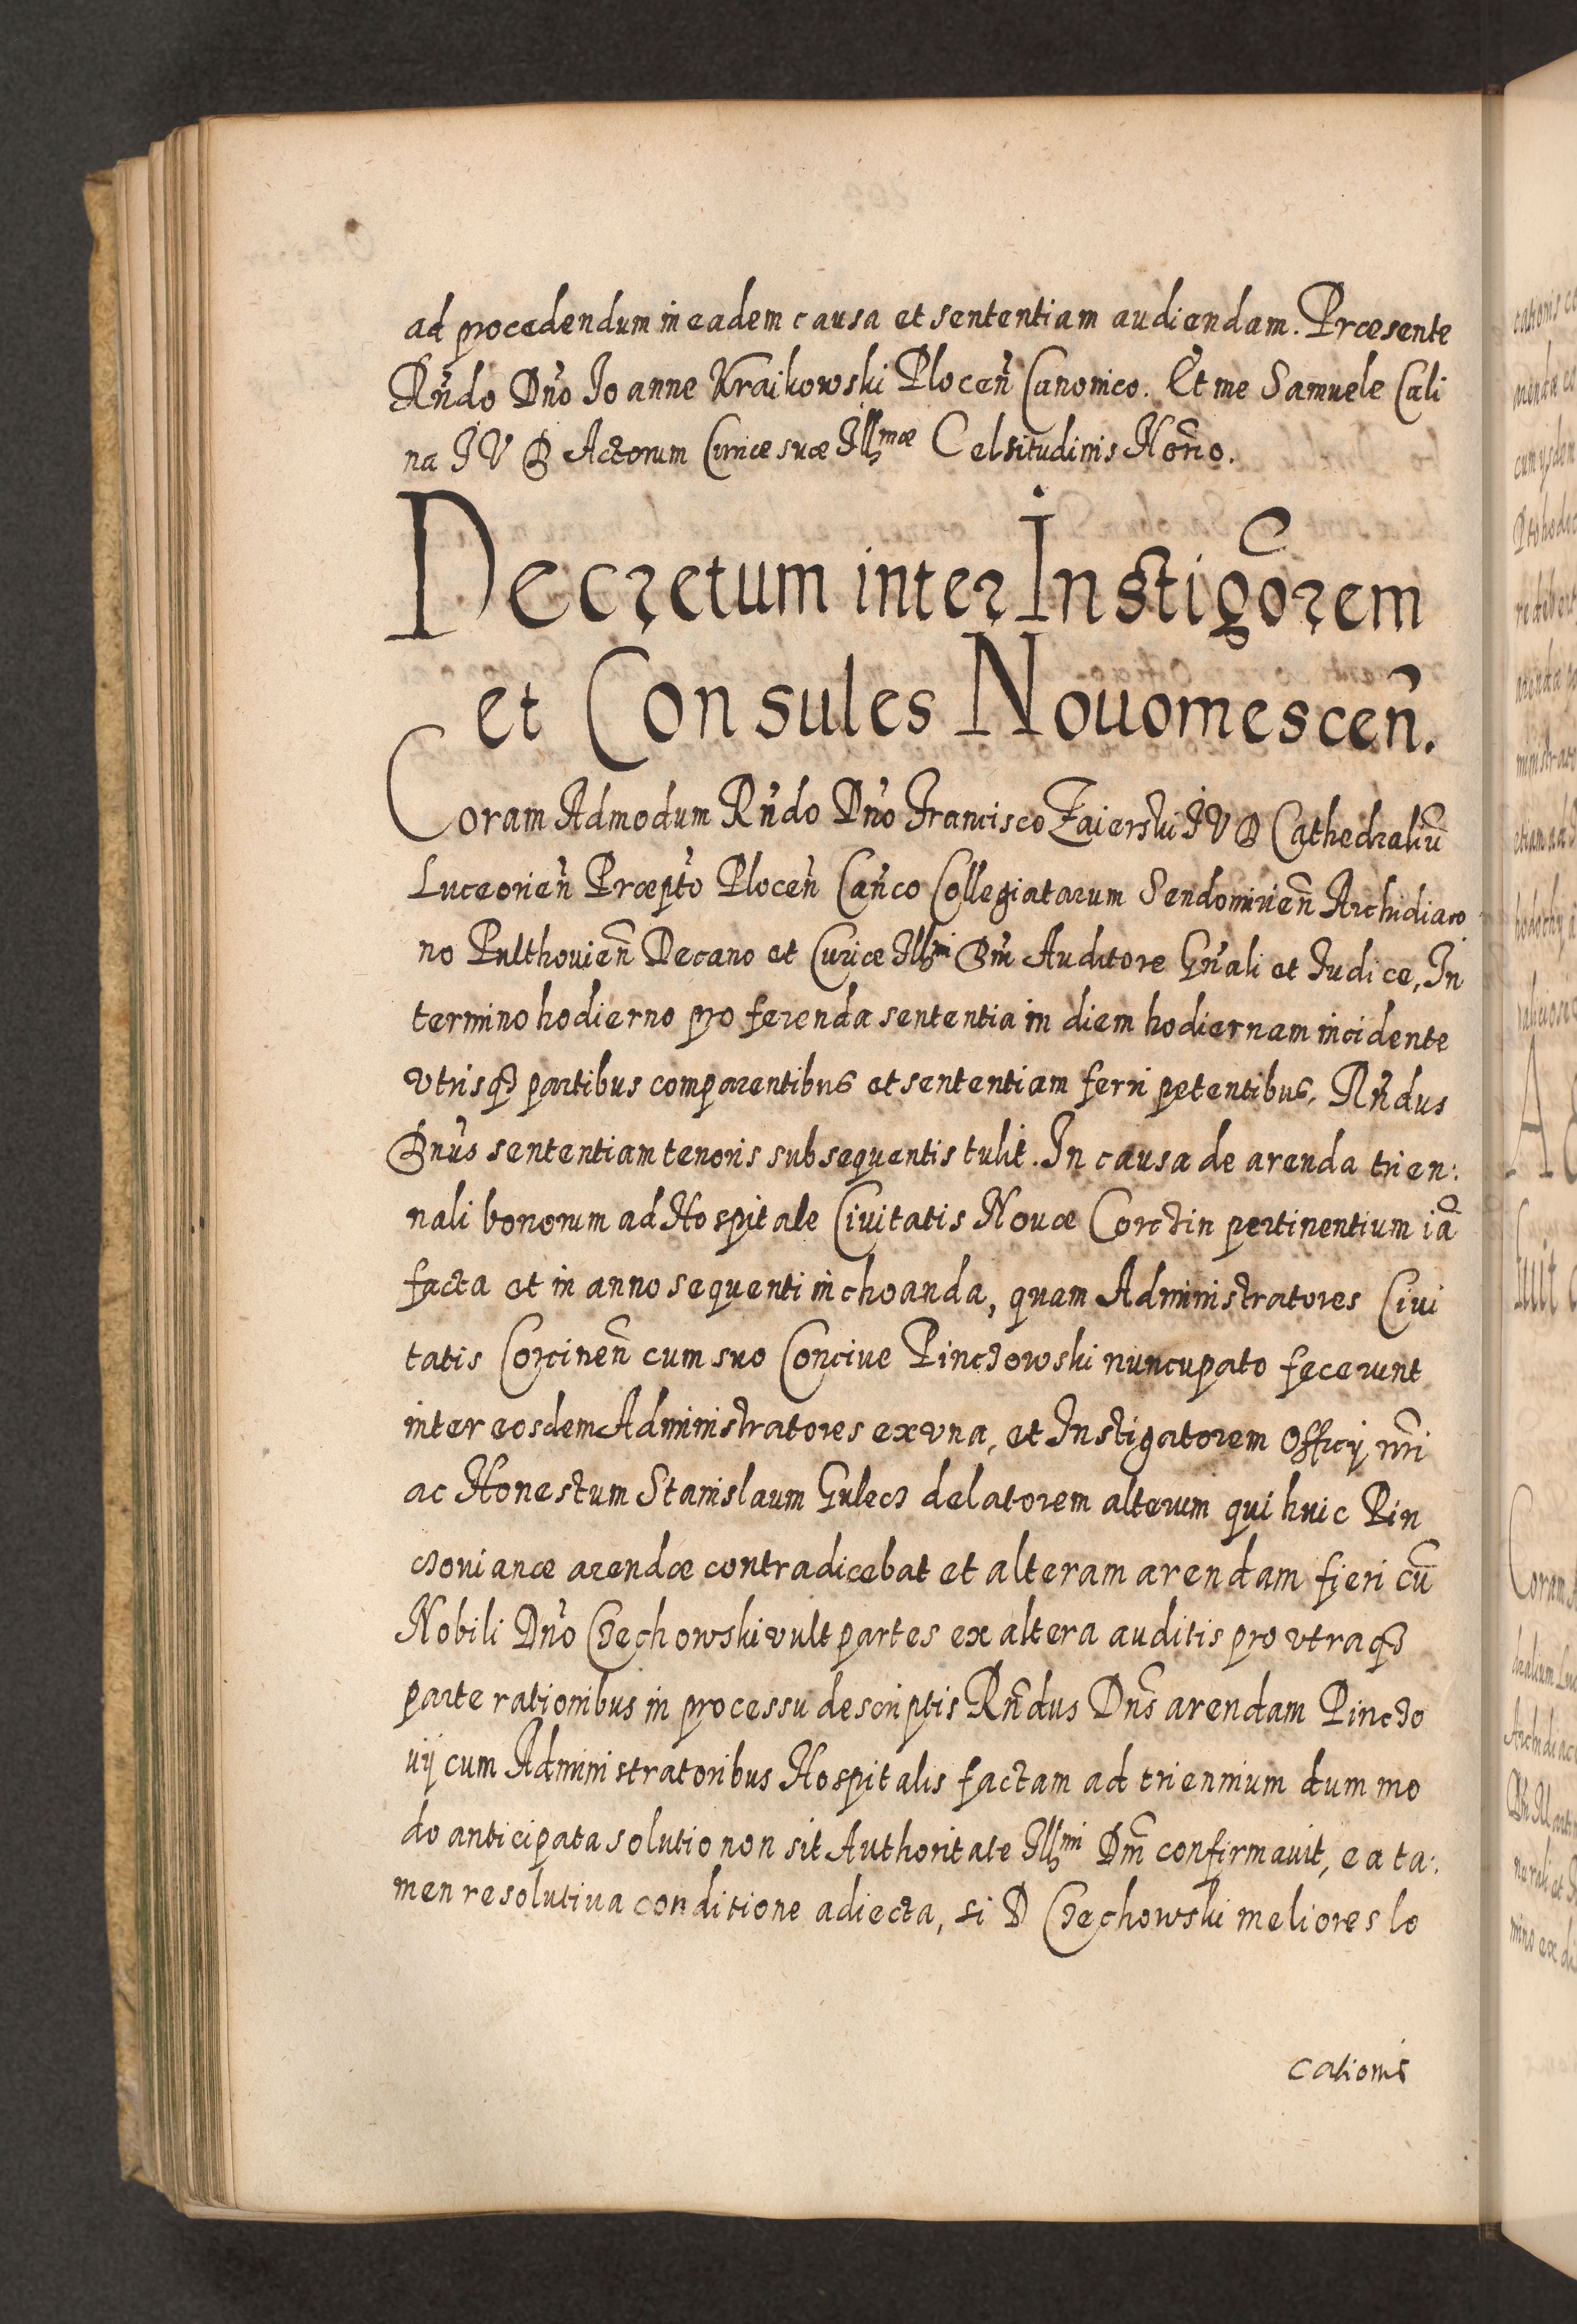 ad procedendum in eadem causa et sententiam audiendam. Præsente
Rñdo Dño Joanne Kraikowski Plocen̄ Canonico. Et me Samuele Cali
na J V D Actorum Curiæ suæ Jllmæ Celsitudinis Notrio.
Decretum inter Instigōrem
et Consules Nouomescen̄.
Coram Admodum Rñdo Dño Francisco Zaierski J V D Cathedraliū
Luceorien̄ Præpto Plocen̄ Cañco Collegiatarum Sendomirien̄ Archidiaco
no Pulthouien̄ Decano et Curiæ Jllmi Dni Auditore Gñali et Judice, In
termino hodierno pro ferenda sententia in diem hodiernam incidente
vtrisq3 partibus comparentibus et sententiam ferri petentibus, Rñdus
Dnūs sententiam tenoris subsequentis tulit. In causa de arenda trien:
nali bonorum ad Hospitale Ciuitatis Nouæ Corczin pertinentium iā
facta et in anno sequenti inchoanda, quam Administratores Ciui
tatis Corcinen̄ cum suo Conciue Pinczowski nuncupato fecerunt
inter eosdem Administratores ex vna, et Instigatorem Officij nr̄i
ac Honestum Stanislaum Gulecz delatorem alterum qui huic Pin
czouianæ arendæ contradicebat et alteram arendam fieri cū
Nobili Dño Czechowski vult partes ex altera auditis pro vtraq3
parte rationibus in processu descriptis Rñdus Dns̄ arendam Pinczo
uij cum Administratoribus Hospitalis factam ad triennium dum mo
do anticipata solutio non sit Authoritate Jllmi Dni confirmauit, ea ta:
men resolutiua conditione adiecta, si D Czechowski meliores lo
cationis